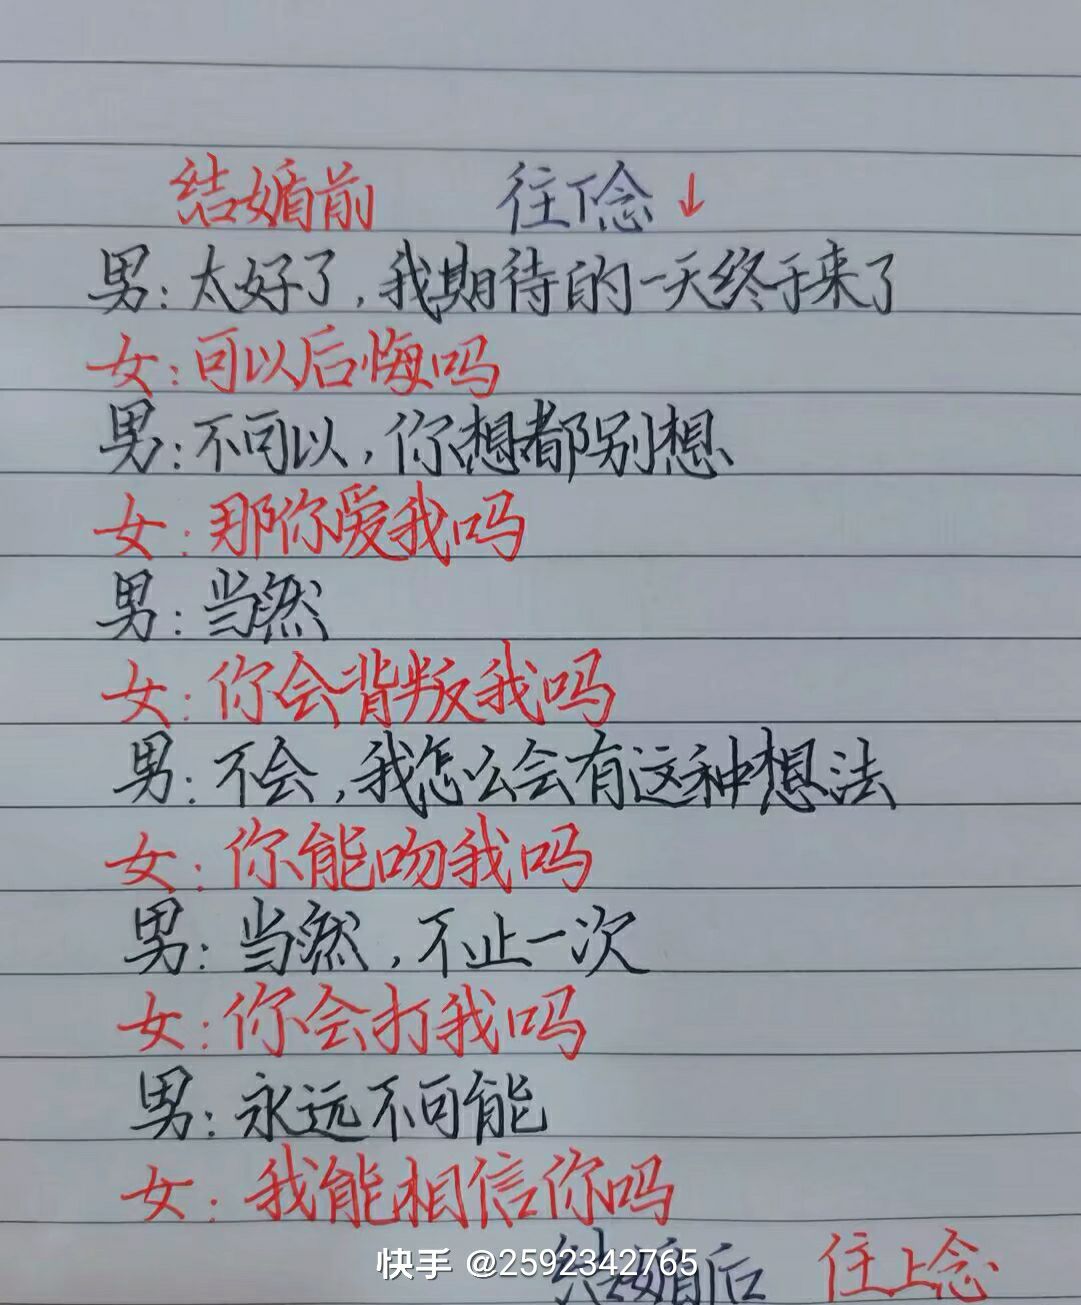 结婚前 往下念↓
男:太好了,我期待的一天终于来了
女:可以后悔吗
男:不可以,你想都别想
女:那你爱我吗
男:当然
女:你会背叛我吗
男:不会,我怎么会有这种想法
女:你能吻我吗
男:当然,不止一次
女:你会打我吗
男:永远不可能
女:我能相信你吗
结婚后 往上念
快手 @2592342765